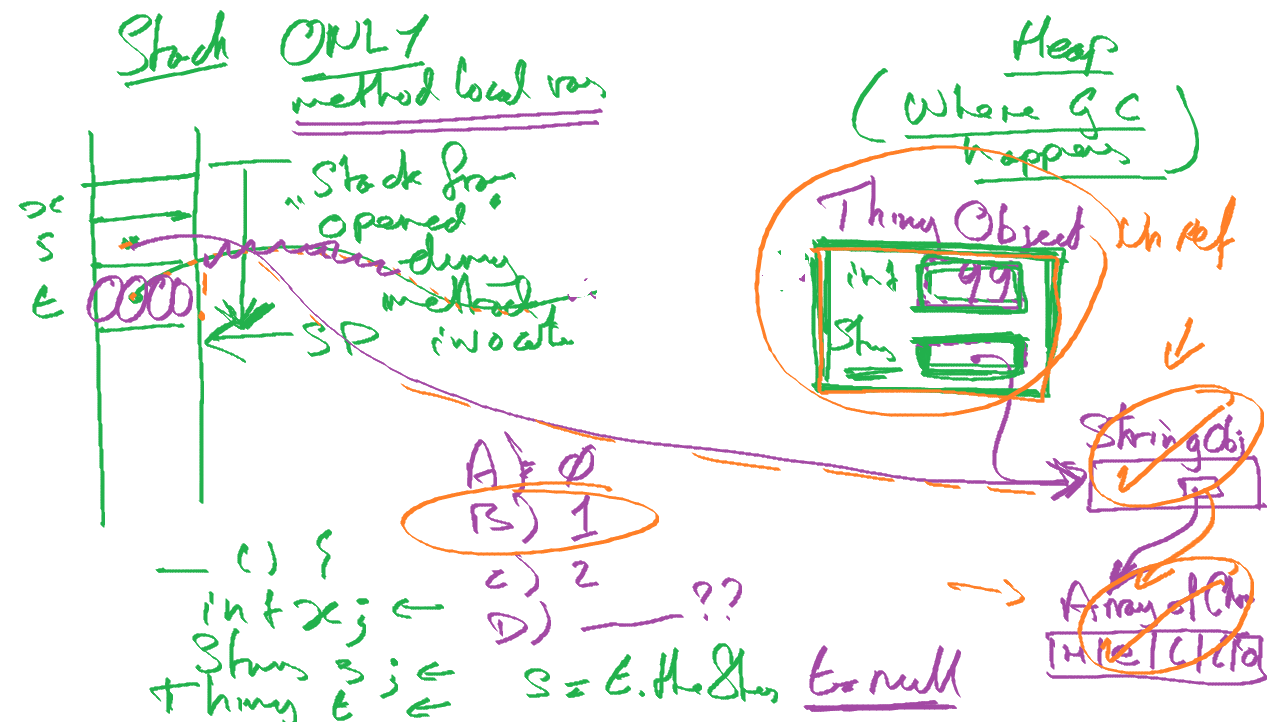 Stack ONLY
method local vars
Heap
(Where GC
happens)
"Stack fram
opened"
during
method
invocatn
x
s
t
0000
SP
Thing Object
int 99
String
Un ref
String Obj
Array of Char
H e l l o
A) 0
B) 1
C) 2
D) ___ ??
__ () {
int x; ←
String s; ←
Thing t ←
s = t.theString
t = null